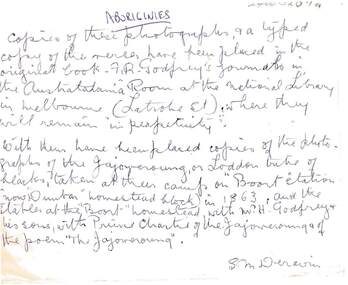 ABORIGINIES
copies of these photographs, & a typed
copy of the verses have been placed in the
original book - F.R. Godfrey's journals in
the Australasian Room at the National Library
in Melbourne (Latrobe St). where they
will remain "in perpetuity".
With them have been placed copies of the photo-
graphs of the Jajowerowng, or Loddon tribe of
blacks, taken at their camp on Boort Station
now "Dunbar" homestead block in 1863, and the
at the "Boort" homestead, with Mr. H. Godfrey &
his sons, with Prince Charlie of the Jajowerowngs of
the poem "The Jajowerowng".